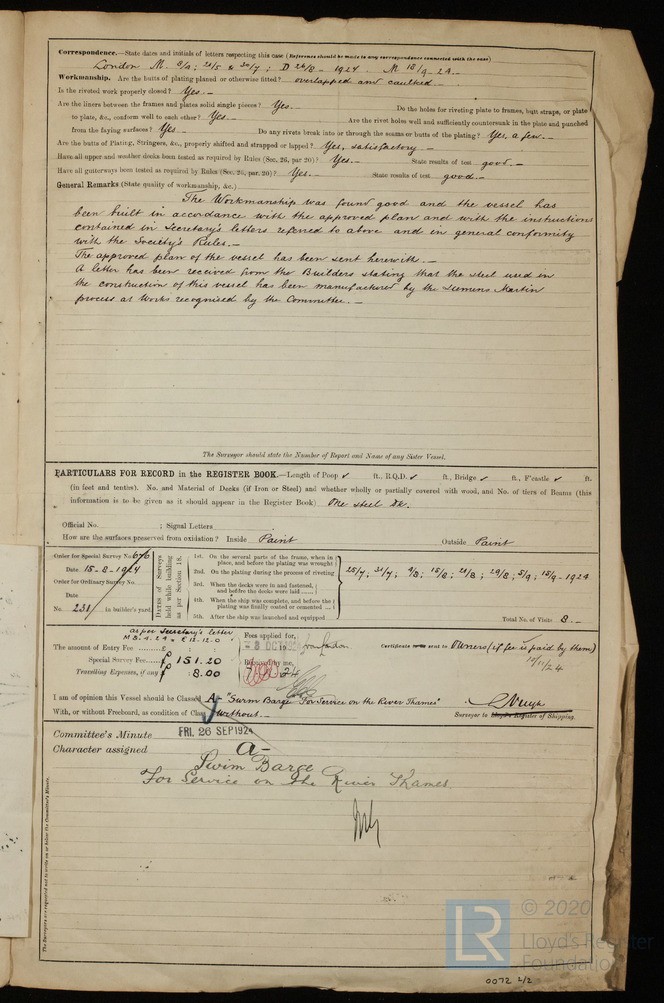 Correspondence.—State dates and initials of letters respecting this case (Reference should be made to any correspondence connected with the case)
London M. 8/4; 21/5 & 30/7; D 26/8 - 1924. M 15/9 - 24.—
Workmanship. Are the butts of plating planed or otherwise fitted? overlapped and caulked
Is the riveted work properly closed? Yes.—
Are the liners between the frames and plates solid single pieces? Yes.— Do the holes for riveting plate to frames, butt straps, or plate
to plate, &c., conform well to each other? Yes.— Are the rivet holes well and sufficiently countersunk in the plate and punched
from the faying surfaces? Yes.— Do any rivets break into or through the seams or butts of the plating? Yes, a few.—
Are the butts of Plating, Stringers, &c., properly shifted and strapped or lapped? Yes, satisfactory—
Have all upper and weather decks been tested as required by Rules (Sec. 26, par. 20)? Yes.— State results of test good.—
Have all gutterways been tested as required by Rules (Sec. 26, par. 20)? Yes.— State results of test good.—
General Remarks (State quality of workmanship, &c.)
The Workmanship was found good and the vessel has
been built in accordance with the approved plan and with the instructions
contained in Secretary's letters referred to above and in general conformity
with the Society's Rules.—
The approved plan of the vessel has been sent herewith.—
A letter has been received from the Builders stating that the steel used in
the construction of this vessel has been manufactured by the Siemens Martin
process at Works recognised by the Committee.—
The Surveyor should state the Number of Report and Name of any Sister Vessel.
PARTICULARS FOR RECORD in the REGISTER BOOK.—Length of Poop ✓ ft., R.Q.D. ✓ ft., Bridge ✓ ft., F'castle ✓ ft.
(in feet and tenths). No. and Material of Decks (if Iron or Steel) and whether wholly or partially covered with wood, and No. of tiers of Beams (this
information is to be given as it should appear in the Register Book) One steel Dk.
Official No. ; Signal Letters
How are the surfaces preserved from oxidation? Inside Paint Outside Paint
Order for Special Survey No. 676
Date 15-8-1924
Order for Ordinary Survey No.
Date
No. 231 in builder's yard.
DATES of Surveys held while building as per Section 18.
1st. On the several parts of the frame, when in place, and before the plating was wrought
2nd. On the plating during the process of riveting
3rd. When the decks were in and fastened, and before the decks were laid
4th. When the ship was complete, and before the plating was finally coated or cemented
5th. After the ship was launched and equipped
25/7; 31/7; 9/8; 15/8; 21/8; 29/8; 5/9; 15/9 - 1924
Total No. of Visits 8.—
as per Secretary's letter
M 8.4.24 £12.12.0
The amount of Entry Fee £ : :
Special Survey Fee £ 151.20
Travelling Expenses, if any £ 8.00
Fees applied for,
8 OCT 19
from London
Received by me,
Certificate to be sent to Owners (if fee is paid by them)
14/11/24
I am of opinion this Vessel should be Classed A- "Swim Barge For Service on the River Thames"
With, or without Freeboard, as condition of Class without.—
Surveyor to Lloyd's Register of Shipping.
Committee's Minute FRI. 26 SEP 1924
Character assigned A-
Swim Barge
For Service on the River Thames
The Surveyors are requested not to write on or below the Committee's Minute.
© 2020
LR
Lloyd's Register
Foundation
0072 2/2